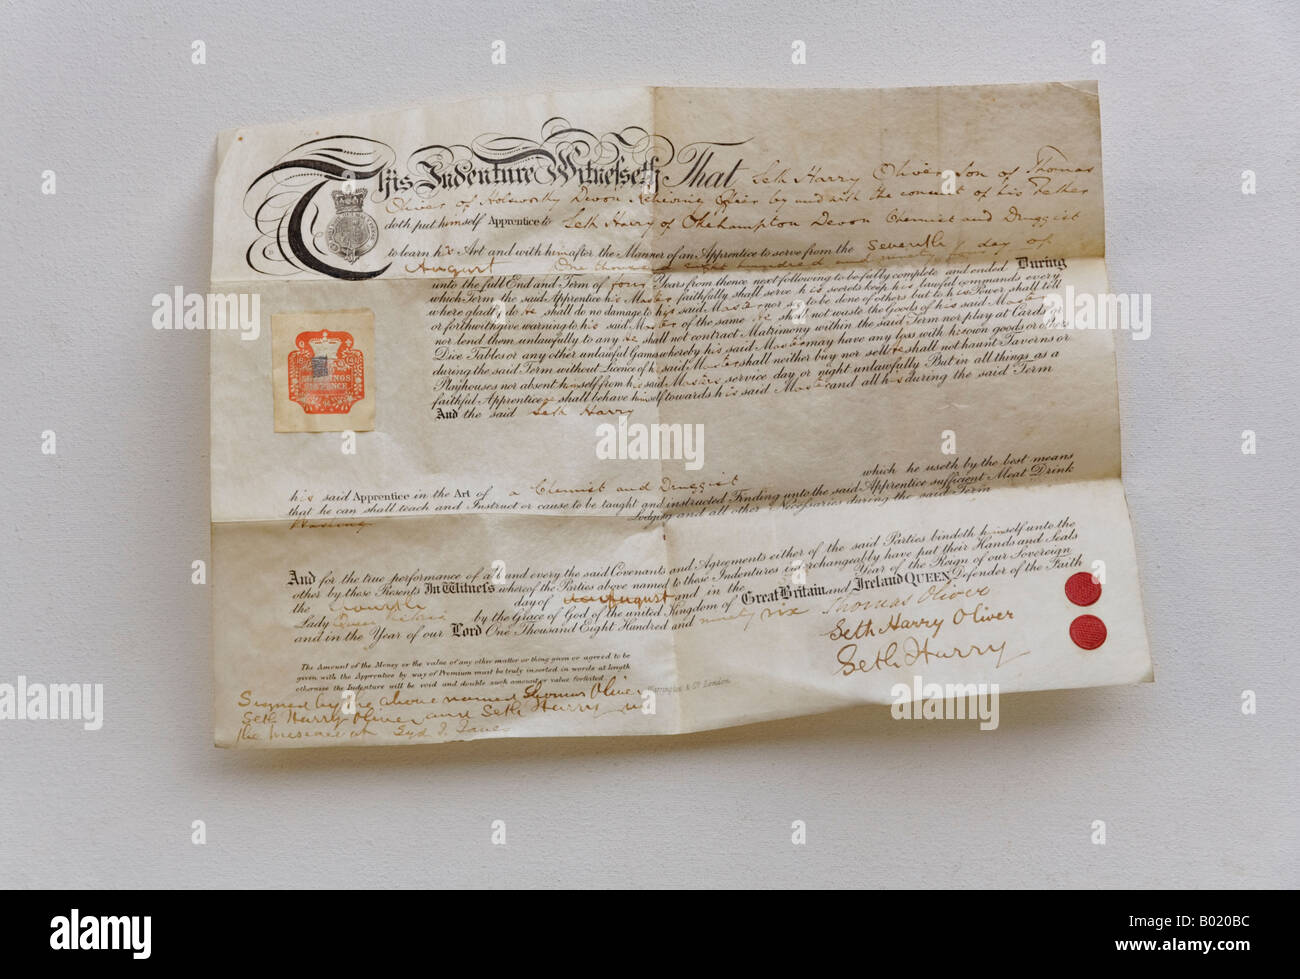 This Indenture Witnesseth That Seth Harry Oliver son of Thomas
Oliver of Holsworthy Devon by and with the consent of his Father
doth put himself Apprentice to Seth Harry of Okehampton Devon Chemist and Druggist
to learn his Art and with him after the Manner of an Apprentice to serve from the Seventh day of
August One thousand eight hundred and ninety
unto the full End and Term of four Years from thence next following to be fully complete and ended During
which Term the said Apprentice his Master faithfully shall serve his secrets keep his lawful commands every
where gladly do he shall do no damage to his said Master nor see to be done of others but to his Power shall tell
or forthwith give warning to his said Master of the same he shall not waste the Goods of his said Master
nor lend them unlawfully to any he shall not contract Matrimony within the said Term nor play at Cards or
Dice Tables or any other unlawful Games whereby his said Master may have any loss with his own goods or others
during the said Term without Licence of his said Master shall neither buy nor sell he shall not haunt Taverns or
Playhouses nor absent himself from his said Masters service day or night unlawfully But in all things as a
faithful Apprentice he shall behave himself towards his said Master and all his during the said Term
And the said Seth Harry
his said Apprentice in the Art of a Chemist and Druggist which he useth by the best means
that he can shall teach and Instruct or cause to be taught and instructed Finding unto the said Apprentice sufficient Meat Drink
Lodging and all other Necessaries during the said Term
And for the true performance of all and every the said Covenants and Agreements either of the said Parties bindeth himself unto the
other by these Presents In Witness whereof the Parties above named to these Indentures interchangeably have put their Hands and Seals
the day of August and in the Year of the Reign of our Sovereign
Lady Queen Victoria by the Grace of God of the united Kingdom of Great Britain and Ireland QUEEN Defender of the Faith
and in the Year of our Lord One Thousand Eight Hundred and ninety six
Thomas Oliver
Seth Harry Oliver
Seth Harry
The Amount of the Money or the value of any other matter or thing given or agreed to be
given with the Apprentice by way of Premium must be truly inserted in words at length
otherwise the Indenture will be void and double such amount or value forfeited.
Warrington & Co London
Signed by the above named Thomas Oliver
Seth Harry Oliver and Seth Harry in
the presence of
SIXPENCE
alamy
alamy
Image ID: B020BC
www.alamy.com